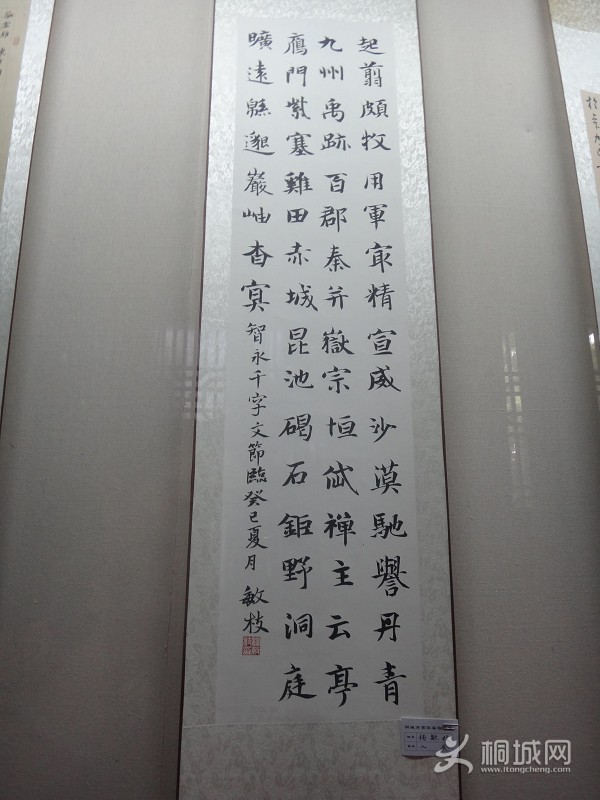 起翦頗牧用軍最精宣威沙漠馳譽丹青
九州禹跡百郡秦并嶽宗恒岱禪主云亭
鴈門紫塞雞田赤城昆池碣石鉅野洞庭
曠遠緜邈巖岫杳冥智永千字文節臨癸巳夏月 敏枝
桐城网
www.itongcheng.com